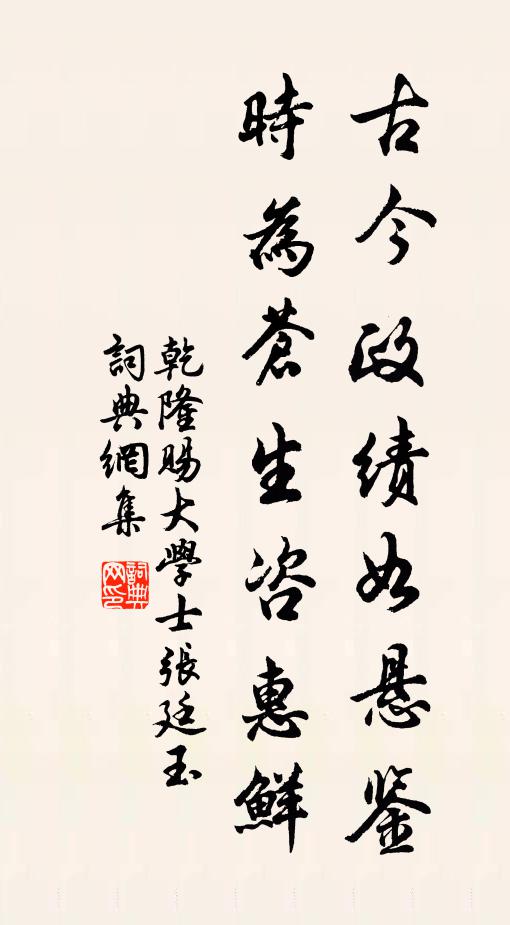 古今政績如悬鉴
時為蒼生咨惠鮮
乾隆賜大學士張廷玉
詞典網集
詞典网印